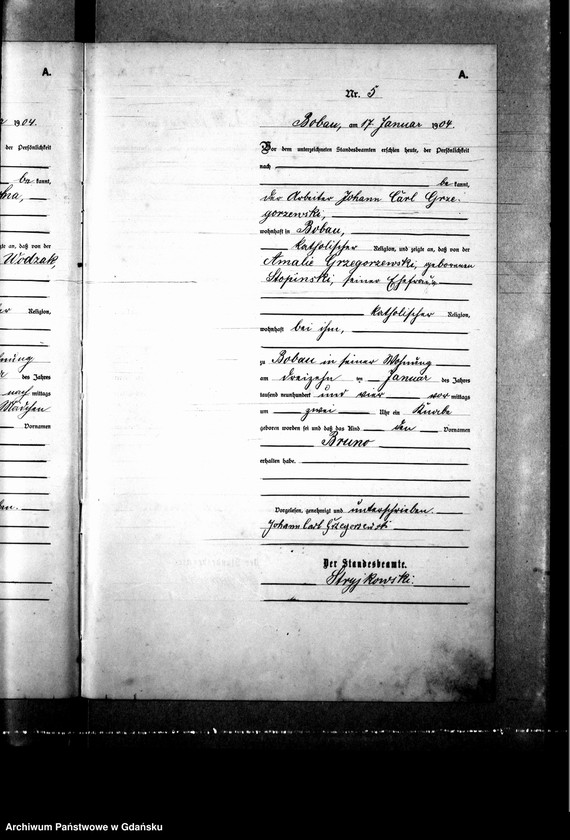 A.
1904.
der Persönlichkeit
be kannt,
zeigte an, daß von der
Wodzak,
Religion,
des Jahres
nach mittags
Mädchen
Vornamen
A.
Nr. 5
Bobau, am 17 Januar 1904.
Vor dem unterzeichneten Standesbeamten erschien heute, der Persönlichkeit
nach
be kannt,
der Arbeiter Johann Carl Grze-
gorzewski,
wohnhaft in Bobau,
katholischer Religion, und zeigte an, daß von der
Amalie Grzegorzewski, geborenen
Stopinski, seiner Ehefrau
katholischer Religion,
wohnhaft bei ihm,
zu Bobau in seiner Wohnung
am dreizehn ten Januar des Jahres
tausend neunhundert und vier vor mittags
um zwei Uhr ein Knabe
geboren worden sei und daß das Kind den Vornamen
Bruno
erhalten habe.
Vorgelesen, genehmigt und unterschrieben.
Johann Carl Grzegorzewski
Der Standesbeamte.
Stryjkowski.
Archiwum Państwowe w Gdańsku